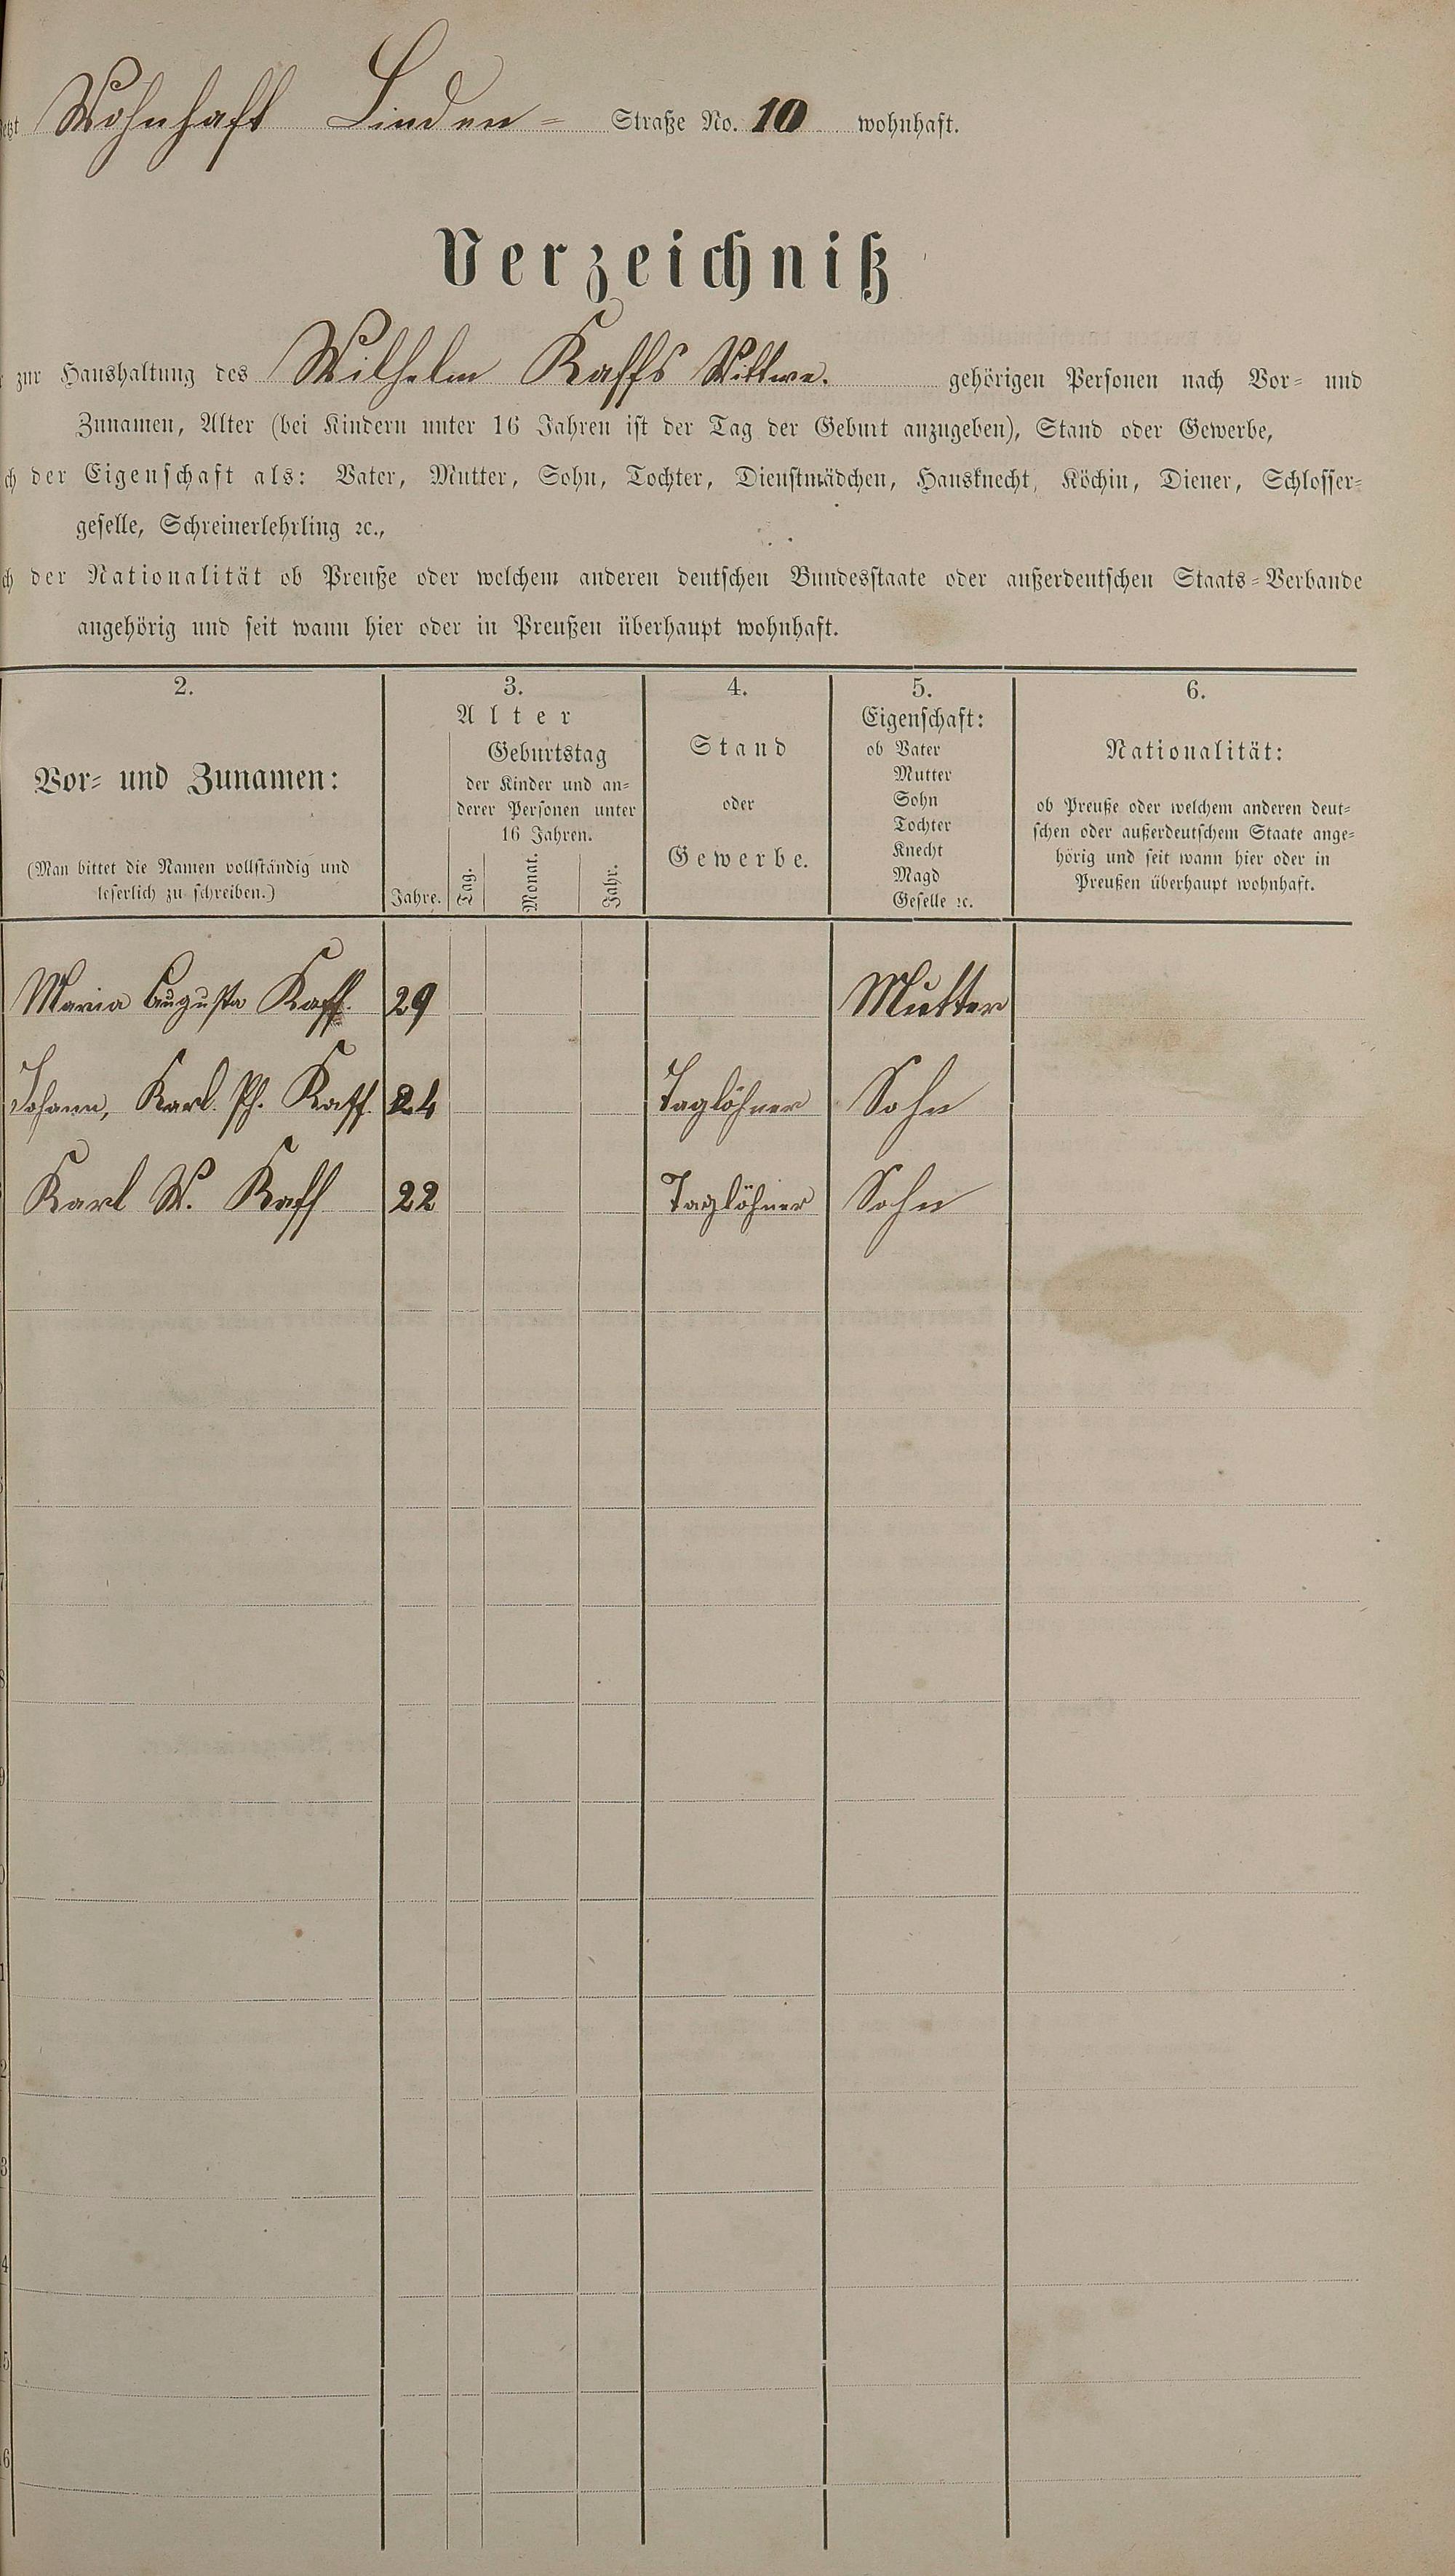 Wohnhaft Linden- Straße No. 10 wohnhaft.
Verzeichniß
zur Haushaltung des Wilhelm Kaffs Wittwe. gehörigen Personen nach Vor- und
Zunamen, Alter (bei Kindern unter 16 Jahren ist der Tag der Geburt anzugeben), Stand oder Gewerbe,
ch der Eigenschaft als: Vater, Mutter, Sohn, Tochter, Dienstmädchen, Hausknecht, Köchin, Diener, Schlosser-
geselle, Schreinerlehrling ꝛc.,
ch der Nationalität ob Preuße oder welchem anderen deutschen Bundesstaate oder außerdeutschen Staats-Verbande
angehörig und seit wann hier oder in Preußen überhaupt wohnhaft.
2.
Vor- und Zunamen:
(Man bittet die Namen vollständig und
leserlich zu schreiben.)
3.
Alter
Jahre.
Geburtstag
der Kinder und an-
derer Personen unter
16 Jahren.
Tag.
Monat.
Jahr.
4.
Stand
oder
Gewerbe.
5.
Eigenschaft:
ob Vater
Mutter
Sohn
Tochter
Knecht
Magd
Geselle ꝛc.
6.
Nationalität:
ob Preuße oder welchem anderen deut-
schen oder außerdeutschem Staate ange-
hörig und seit wann hier oder in
Preußen überhaupt wohnhaft.
Maria Augusta Kaff. 29 Mutter
Johann, Karl. Ph. Kaff. 24 Taglöhner Sohn
Karl W. Kaff 22 Taglöhner Sohn